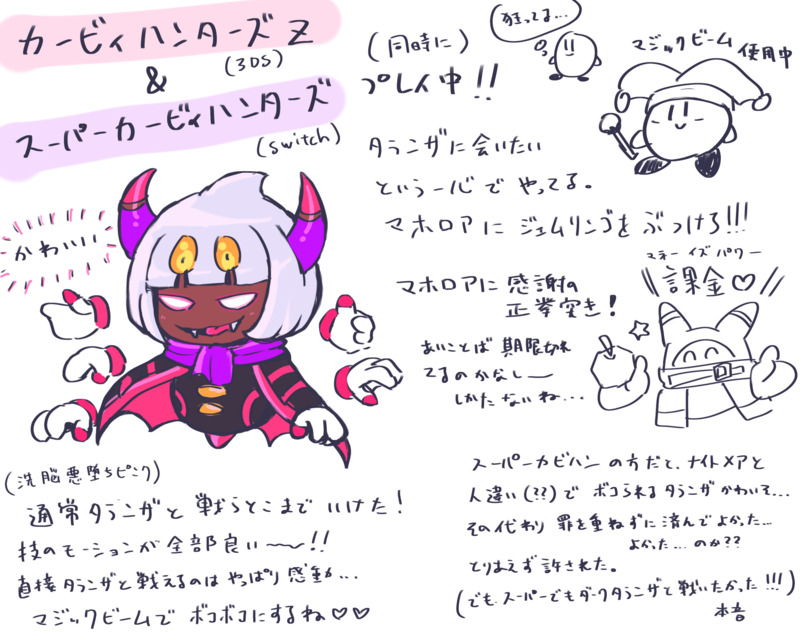 カービィハンターズZ
(3DS)
&
スーパーカービィハンターズ
(switch)
(同時に)
プレイ中!!
狂ってる…
マジックビーム使用中
タランザに会いたい
という一心でやってる。
マホロアにジェムリンゴをぶつけろ!!!
かわいい
マホロアに感謝の
正拳突き!
マネーイズパワー
\\課金♡//
あいことば期限切れ
てるのかなし〜
しかたないね…
(洗脳悪堕ちピンク)
通常タランザと戦うとこまでいけた!
技のモーションが全部良い〜〜!!
直接タランザと戦えるのはやっぱり感動…
マジックビームでボコボコにするね♡♡
スーパーカビハンの方だと、ナイトメアと
人違い(??)でボコられるタランザかわいそ…
その代わり罪を重ねずに済んでよかった…
よかった…のか??
とりまえず許された。
(でも、スーパーでもダークタランザと戦いたかった!!!)
本音